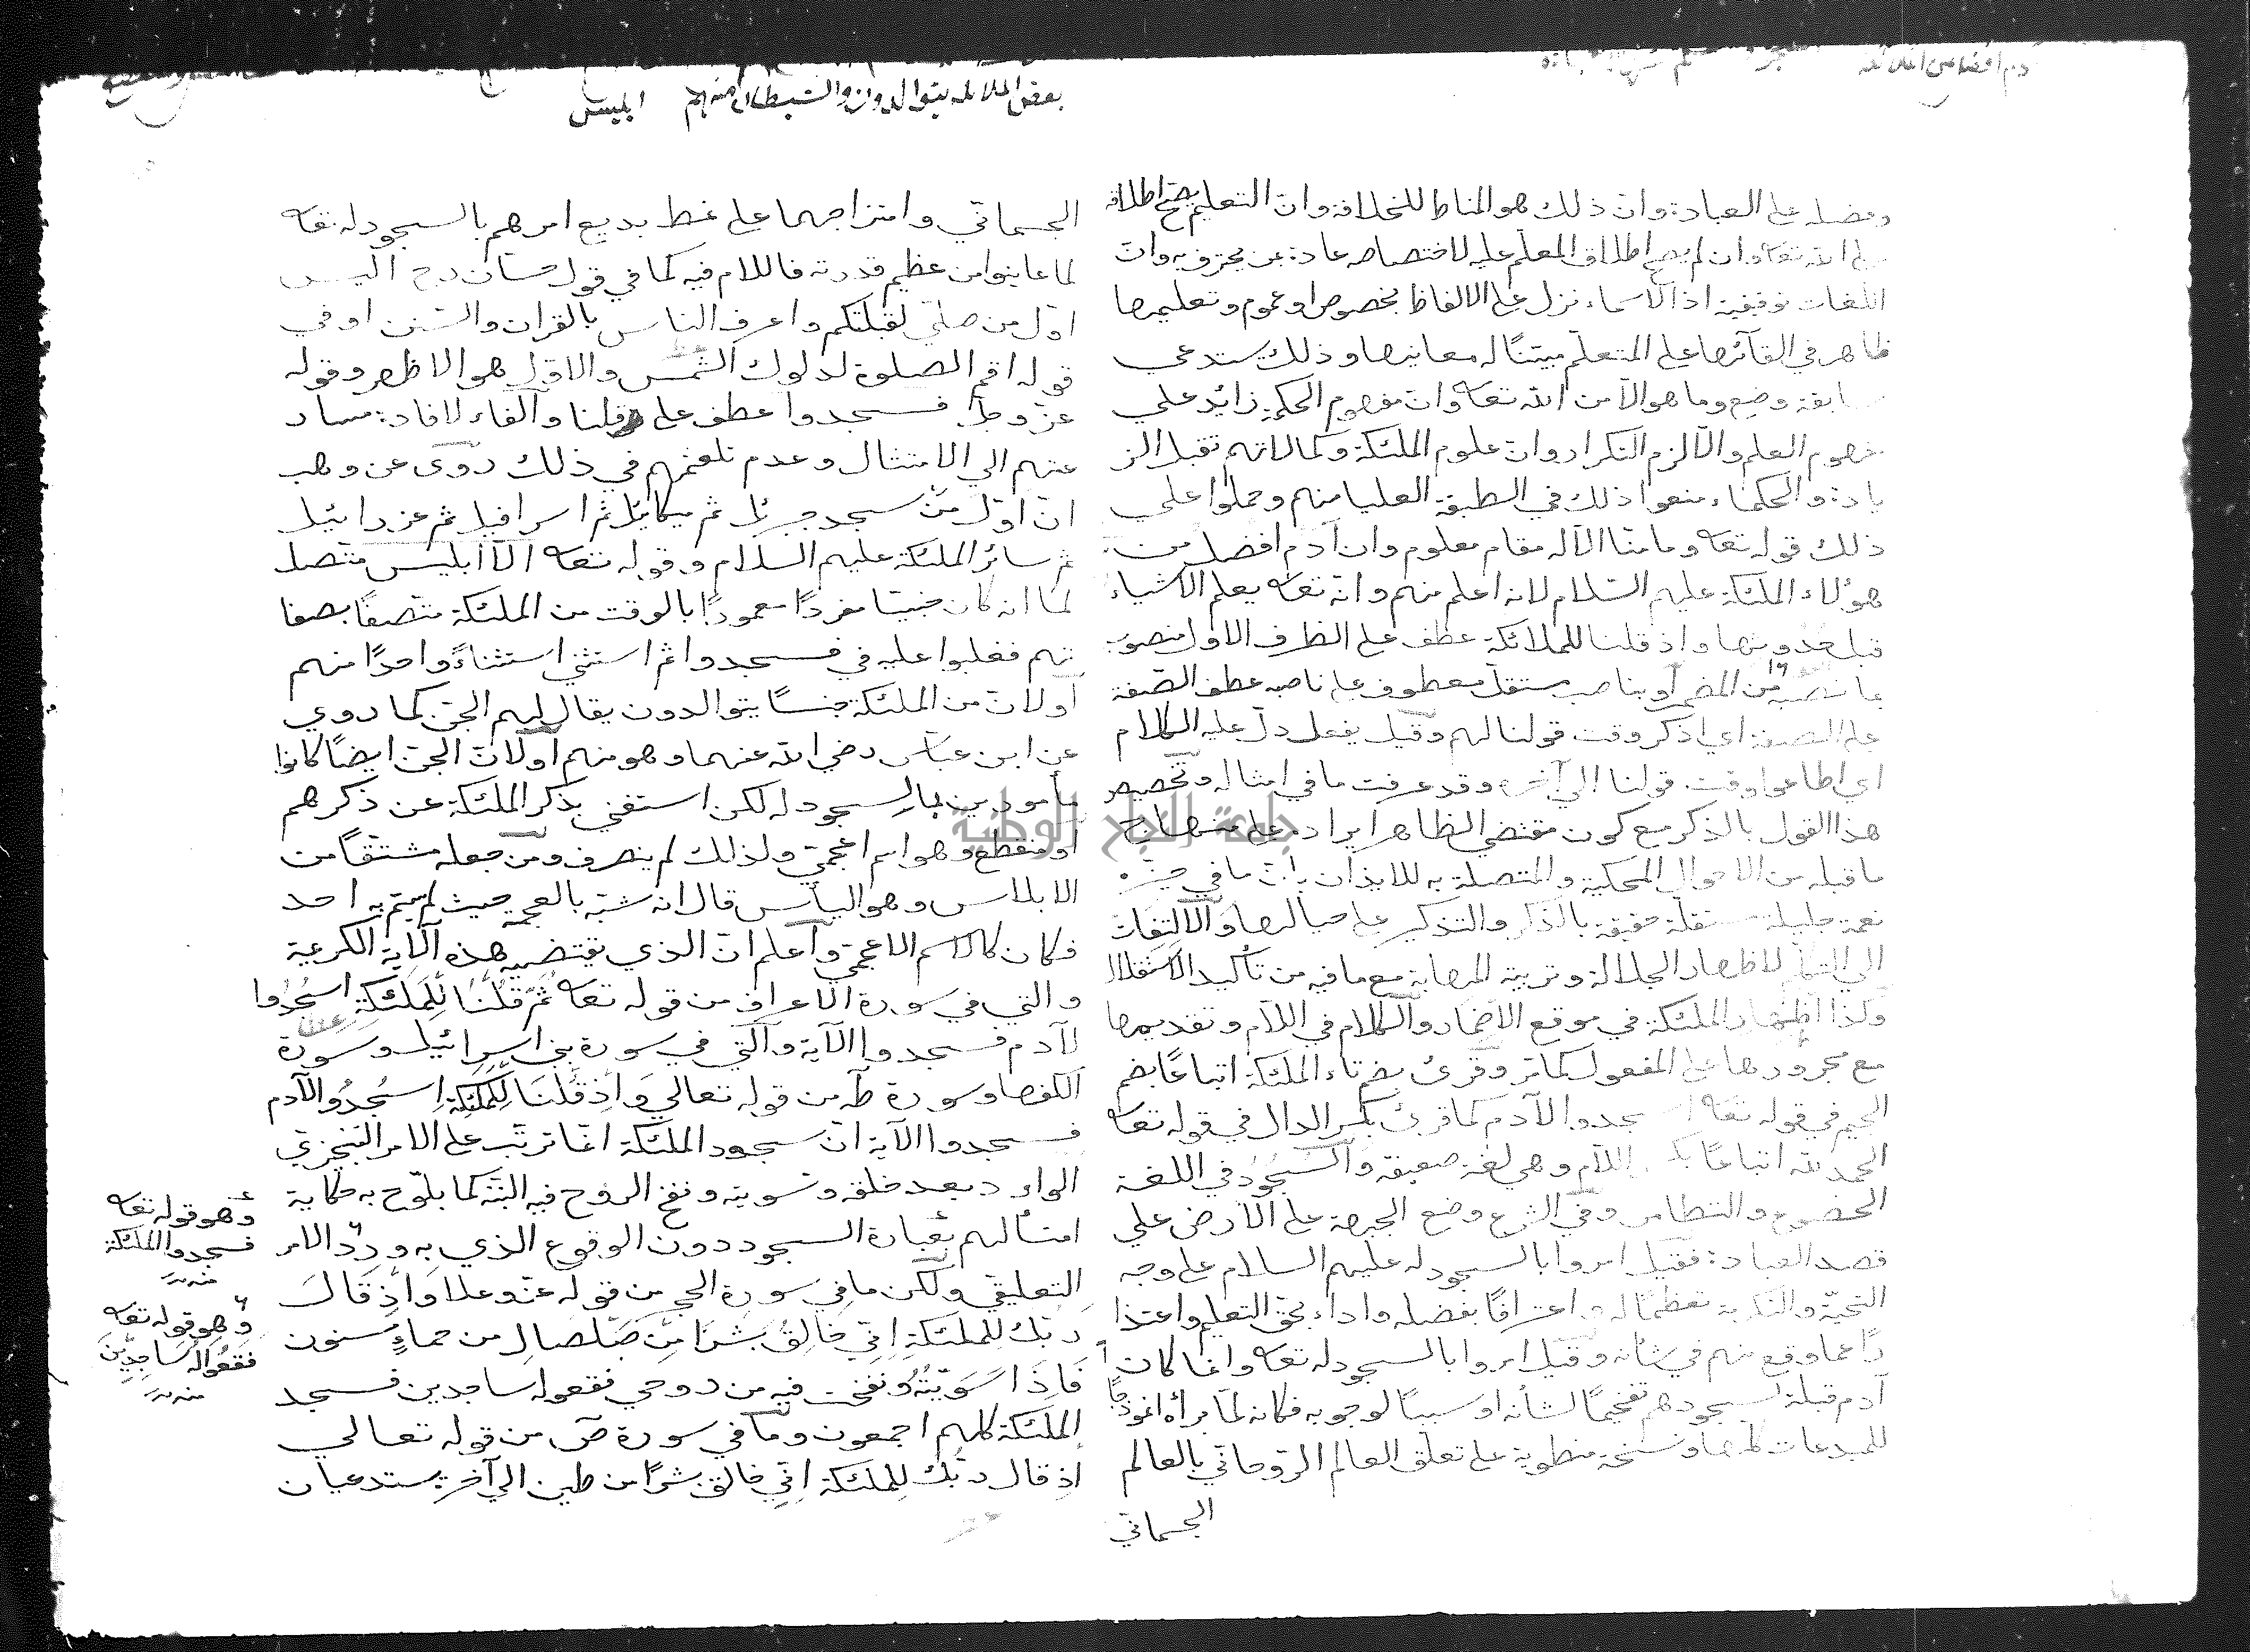 بعض الملائكة يتوالدون والشيطان منهم ابليس
وفضله على العبادة وان ذلك هو المناط للخلافة وان التعليم يصح اطلاقه
الله تعا وان لم يصح اطلاق المعلم عليه لاختصاصه عادة بمن يحترف به وان
اللغات توقيفية اذ الاسماء تدل على الالفاظ بخصوص او عموم وتعليمها
ظاهر في القائها على المتعلم مبيّنًا له معانيها وذلك يستدعي
سابقة وضع وما هو الا من الله تعا وانّ مفهوم الحكمة زائد علي
مفهوم العلم والا لزم التكرار وان علوم الملئكة وكمالاتهم تقبل الز
يادة والحكماء منعوا ذلك في الطبقة العليا منهم وحملوا علي
ذلك قوله تعا وما منّا الا له مقام معلوم وان آدم افضل من
هؤلاء الملئكة عليهم السّلام لانه اعلم منهم وانه تعا يعلم الاشياء
قبل حدوثها واذ قلنا للملائكة عطف على الظرف الاول منصوب
بما نصبه من المضمر أو بناصب مستقل معطوف على ناصبه عطف القصّة
على القصة اي اذكر وقت قولنا لهم وقيل بفعل دلّ عليه الكلام
اي اطاعوا وقت قولنا الي آخره وقد عرفت ما في امثاله وتخصيص
هذا القول بالذكر مع كون مقتضي الظاهر ايراده على منهاج
ما قبله من الاقوال المحكية والمتصلة به للايذان بانّ ما في حيّزه
نعمة جليلة مستقلة حقيقة بالذكر والتذكير على حيالها والالتفات
الي التكلم لاظهار الجلالة وتربية المهابة مع ما فيه من تأكيد الاستقلال
وكذا اظهار الملئكة في موقع الاضمار والكلام في اللام وتقديمها
مع مجرورها على المفعول كما مر وقرئ بضم تاء الملئكة اتباعًا بضم
الجيم في قوله تعا اسجدوا لآدم كما قرئ بكسر الدال في قوله تعا
الحمد لله اتباعًا بكسر اللام وهي لغة ضعيفة والسجود في اللغة
الخضوع والتطامن وفي الشرع وضع الجبهة على الارض علي
قصد العبادة فقيل امروا بالسجود له عليهم السلام على وجه
التحيّة والتكرمة تعظيمًا له واعترافًا بفضله واداء بحق التعليم واعتذا
رًا عما وقع منهم في شأنه وقيل امروا بالسجود له تعا وانما كان
آدم قبلة لسجودهم تفخيمًا لشأنه او سببًا لوجوبه فكانه لما برأه انموذجًا
للمبدعات كلها ونسخة منطوية على تعلق العالم الروحاني بالعالم
الجسماني
الجسماني وامتزاجهما على نمط بديع امرهم بالسجود له تعا
لما عاينوا من عظيم قدرته فاللام فيه كما في قول حسان رح اليس
اوّل من صلّي لقبلتكم واعرف الناس بالقران والسنن او في
قوله اقم الصلوة لدلوك الشمس والاوّل هو الاظهر وقوله
عزّ وجلّ فسجدوا عطف على قلنا والفاء لافادة مسار
عتهم الي الامتثال وعدم تلعثمهم في ذلك روى عن وهب
انّ اوّل من سجد جبرئيل ثم ميكائيل ثم اسرافيل ثم عزرائيل
ثم سائر الملئكة عليهم السلام وقوله تعا الّا ابليس متّصل
لمّا انه كان جنيّا مفردًا مغمورًا بالوقت من الملئكة متّصفًا بصفا
تهم فغلبوا عليه في فسجدوا ثم استثني استثناءً واحدًا منهم
أو لانّ من الملئكة جنسًا يتوالدون يقال لهم الجنّ كما روي
عن ابن عبّاس رضي الله عنهما وهو منهم أو لانّ الجنّ ايضًا كانوا
مأمورين بالسجود له لكن استغني بذكر الملئكة عن ذكرهم
او منقطع وهو اسم اعجميّ ولذلك لم ينصرف ومن جعله مشتقًا من
الابلاس وهو اليأس قال انه شبّه بالعجمة حيث لم يسمّ به احد
فكان كالاسم الاعجميّ واعلم انّ الذي يقتضيه هذه الآية الكريمة
والتي في سورة الاعراف من قوله تعا ثُمَّ قُلْنَا لِلْمَلٰئِكَةِ اسْجُدُوا
لآدم فسجدوا الآية والّتي في سورة بني اسرائيل وسورة
الكهف وسورة طه من قوله تعالي وَاِذْ قُلْنَا لِلْمَلٰئِكَةِ اسْجُدُوا لآدم
فسجدوا الآية انّ سجود الملئكة انما ترتّب على الامر التنجيزي
الوارد بعد خلقه وتسويته ونفخ الروح فيه البتّة كما يلوّح به حكاية
امتثالهم بعبارة السجود دون الوقوع الذي به ورد الامر
التعليقي ولكن ما في سورة الحجر من قوله عزّ وعلا وَاِذْ قَالَ
ربّك لِلْمَلٰئِكَةِ اِنّي خَالِقٌ بَشَرًا مِنْ صَلْصَالٍ من حماءٍ مسنون
فَاِذَا سَوَّيْتُهُ ونفخت فيه من روحي فقعوا له ساجدين فسجد
الملئكة كلهم اجمعون وما في سورة صٓ من قوله تعالي
اِذ قال ربّك للملئكة اِنّي خالق بشرًا من طين الي آخره يستدعيان
وهو قوله تعا
فسجدوا الملئكة
منه
وهو قوله تعا
فَقَعُوا لَهُ سَاجِدِينَ
منه
جامعة النجاح الوطنية